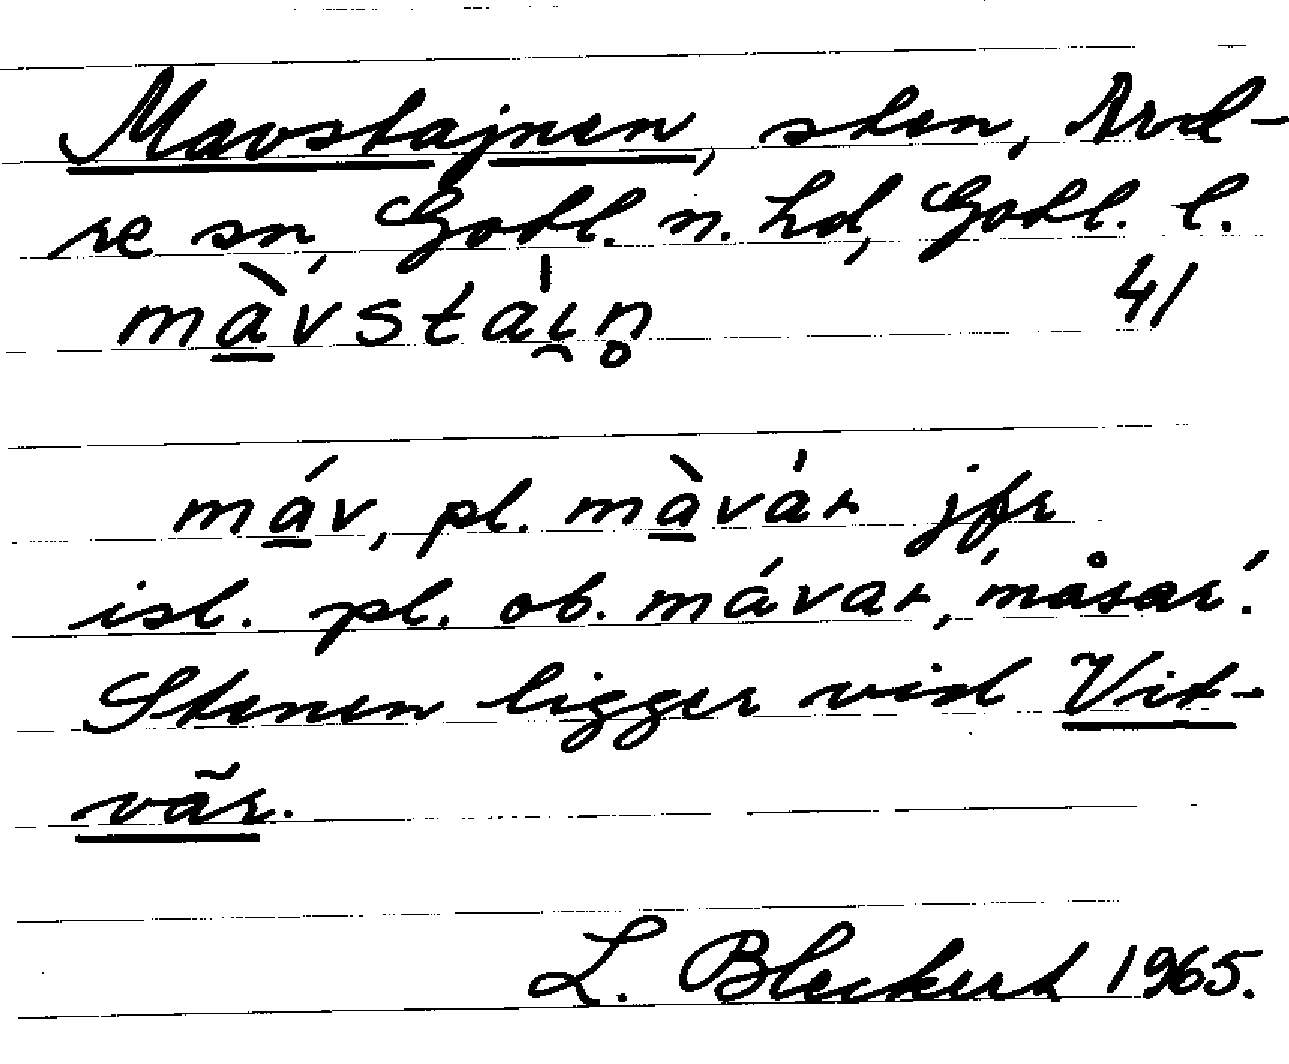 Mavstajnen, sten, Ard-
re sn, Gotl. n. hd, Gotl. l.
màvstá̍i̯n̥ 4/
máv, pl. màvàr jfr
isl. pl. ob. mávar, 'måsar'.
Stenen ligger vid Vit-
vär.
L. Bleckert 1965.